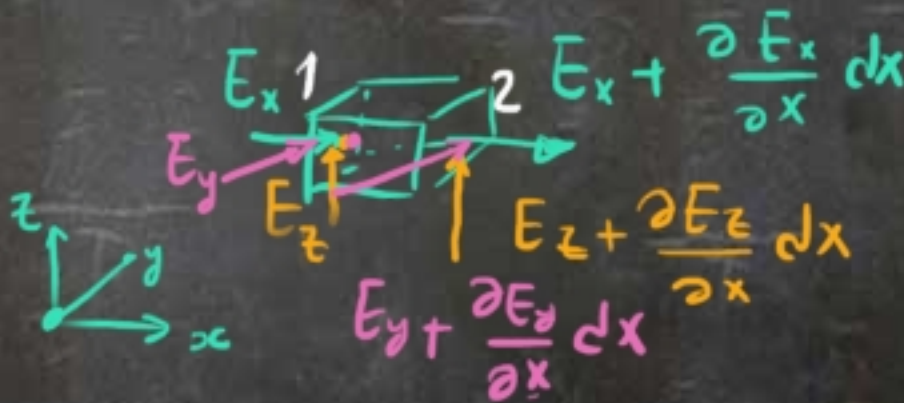 E_x 1 2 E_x + ∂E_x/∂x dx
E_y
E_z E_z + ∂E_z/∂x dx
z y x
E_y + ∂E_y/∂x dx